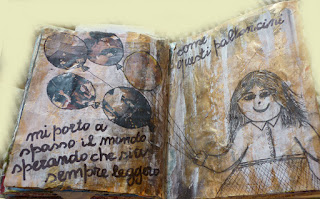 mi porto a
spasso il mondo
sperando che sia
sempre leggero
come
questi palloncini